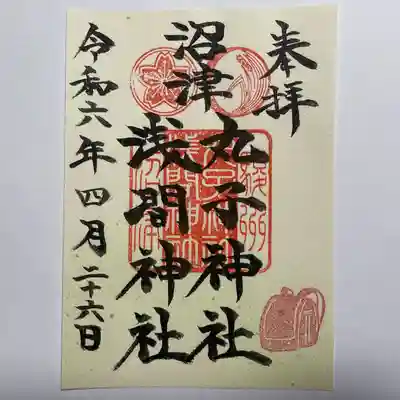 奉拝
沼津
丸子神社
浅間神社
令和六年四月二十六日